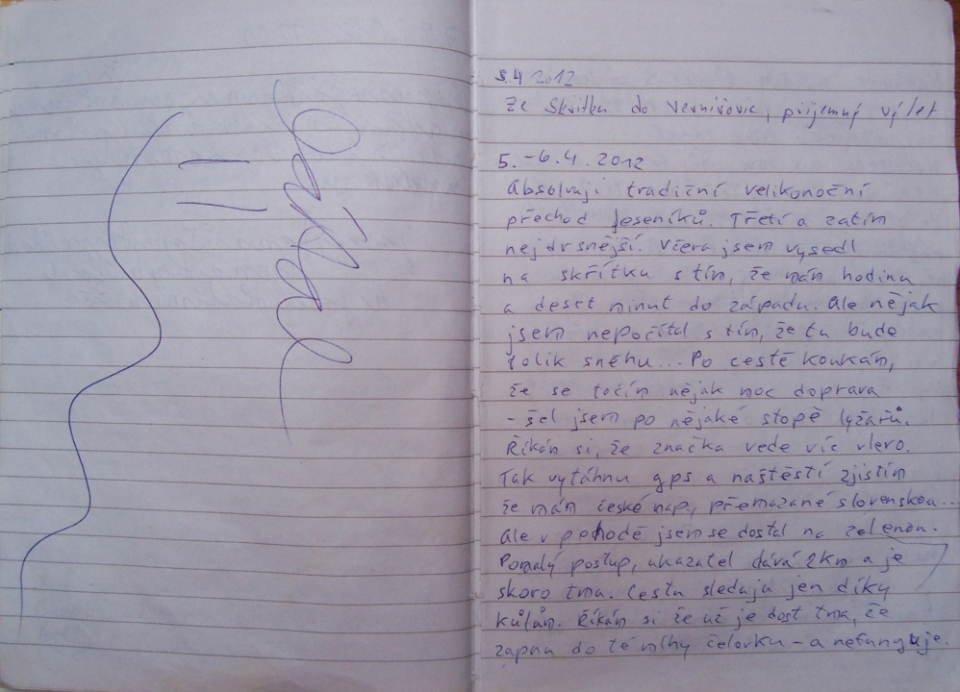 5.4 2012
Ze Skřítku do Vernířovic, příjemný výlet
5.-6.4.2012
Absolvuji tradiční velikonoční
přechod Jeseníků. Třetí a zatím
nejdrsnější. Včera jsem vysedl
na skřítku s tím, že mám hodinu
a deset minut do západu. Ale nějak
jsem nepočítal s tím, že tu bude
tolik sněhu... Po cestě koukám,
že se točím nějak moc doprava
- šel jsem po nějaké stopě lyžařů.
Říkám si, že značka vede víc vlevo.
Tak vytáhnu gps a naštěstí zjistím
že mám české map. přemazané slovenskou...
Ale v pohodě jsem se dostal na zelenou.
Pomalý postup, ukazatel dává 2km a je
skoro tma. Cestu sleduju jen díky
kůlům. Říkám si že už je dost tma, že
zapnu do té mlhy čelovku - a nefunguje.